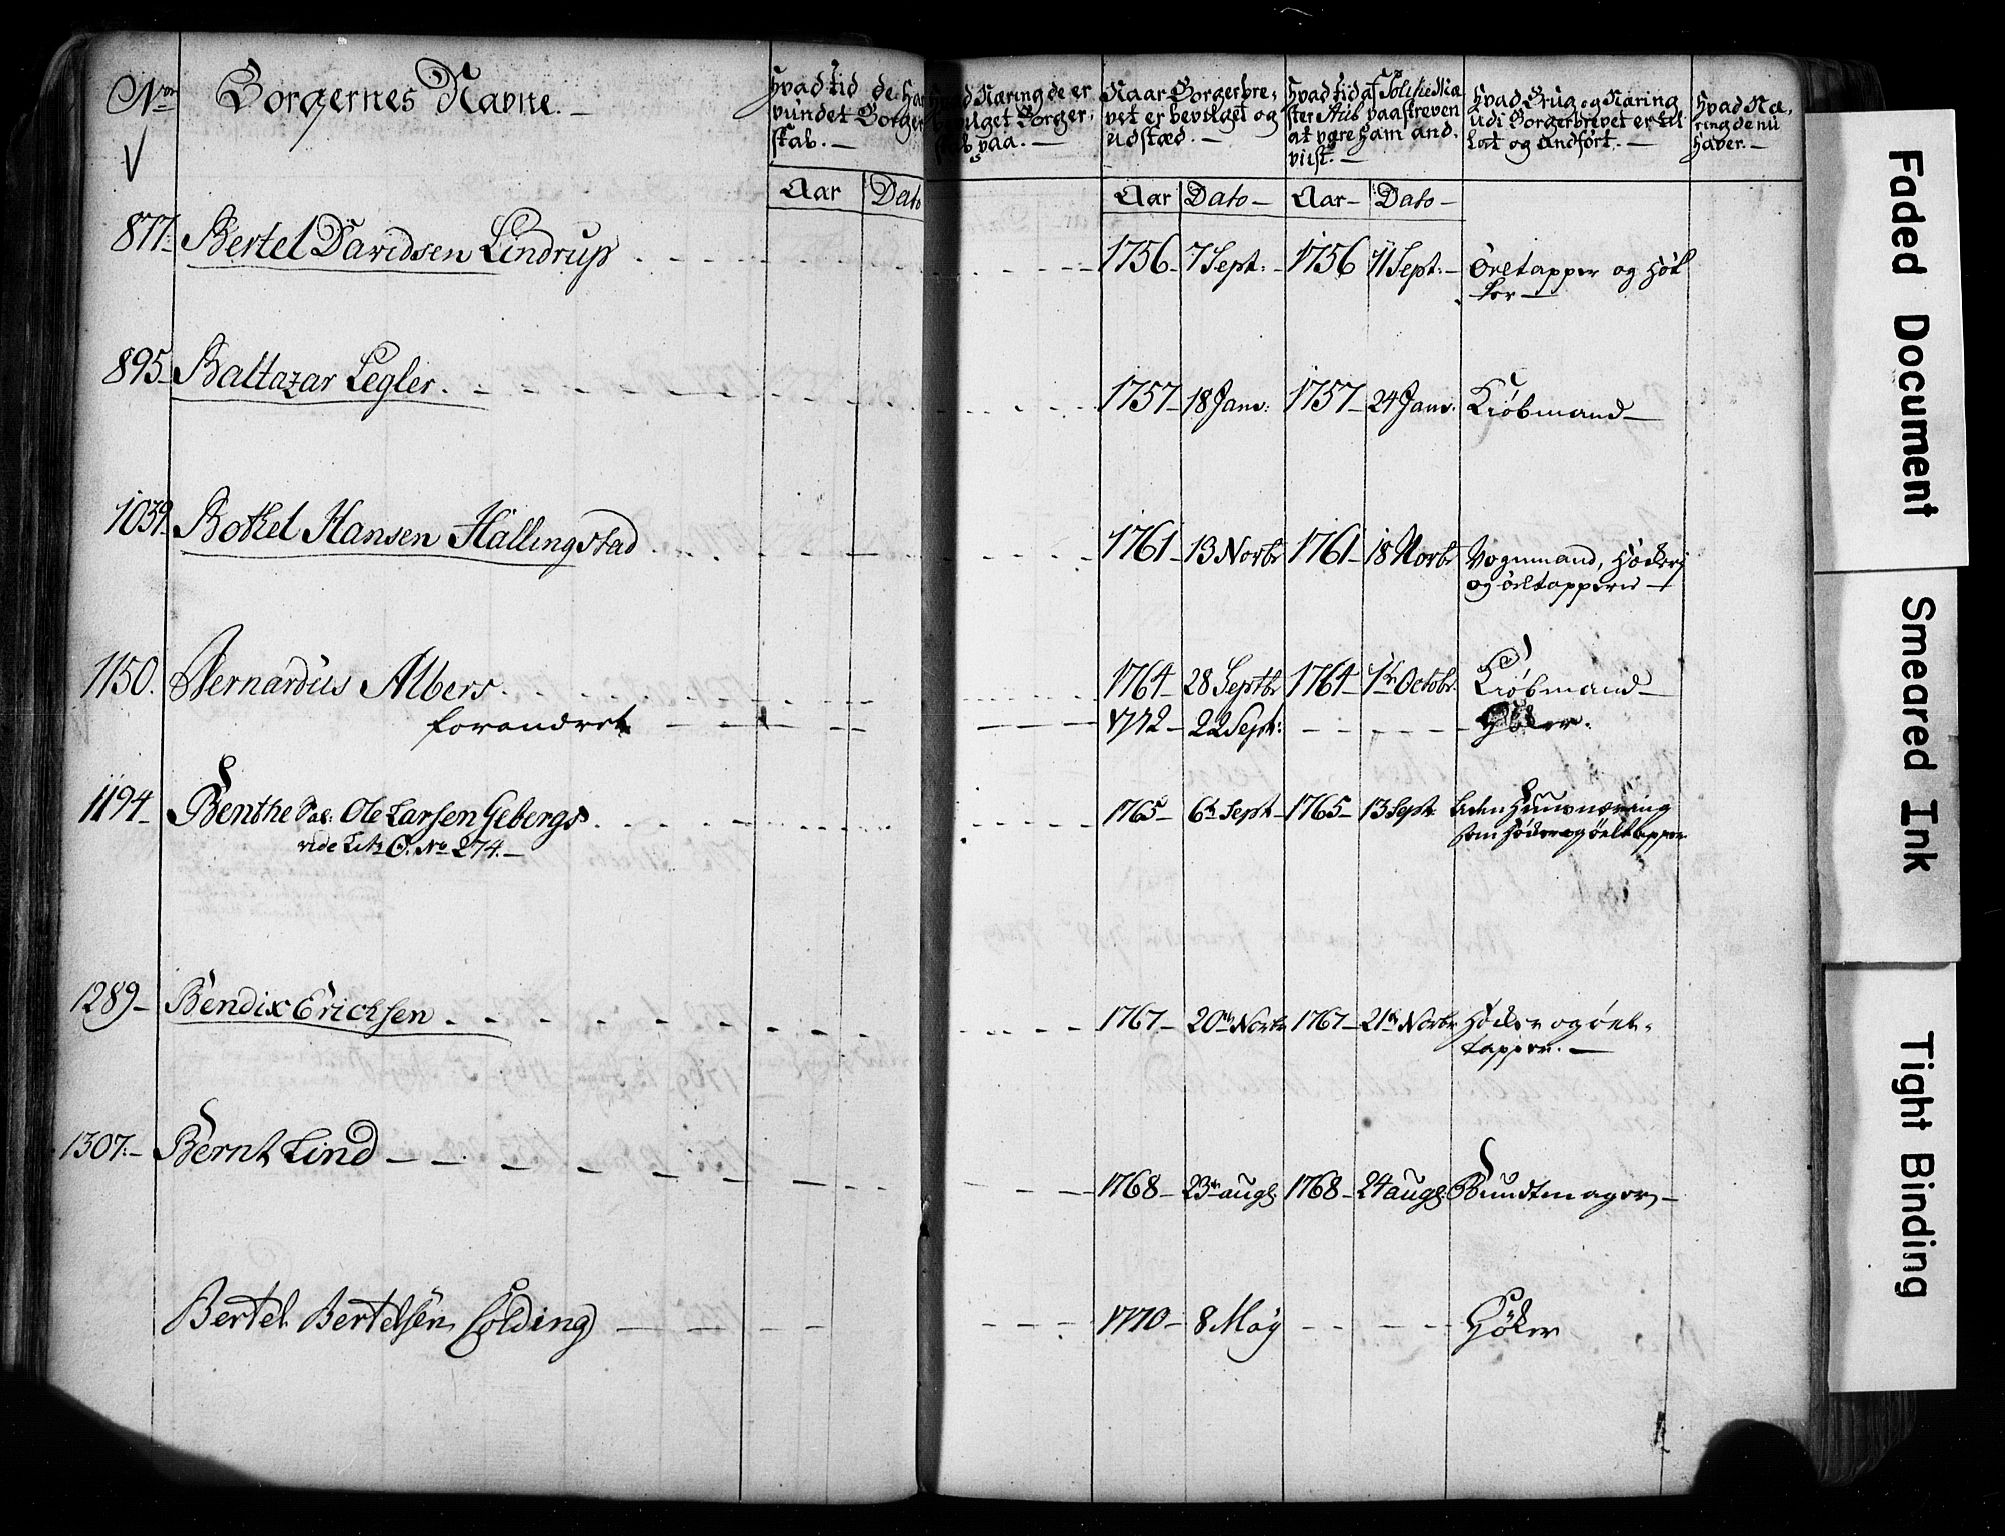 No. Borgernes Navne. —
Hvad tid de har
vundet Borger
skab. —
Hvad Næring de er
bevilget Borger:
skab paa. —
Naar Borgerbre:
vet er bevilget og
udstæd. —
Hvad tid af
ster Aüb paaskreven
at være ham and.
viist. —
Hvad Brug og Næring
udi Borgerbrevet er til
lat og andført. —
Hvad Næ,
ring de nu
haver. —
Aar Dato
Aar Dato — Aar — Dato —
877. Bertel Davidsen Lindrup 1756 — 7 Sept: — 1756 11 Sept: — Øeltapper og Høk
ker —
895 — Baltazar Legler. 1757 — 18 Janv: 1757 — 24 Janv. Kiøbmand —
1039. Bothel Hansen Hallingstad 1761 — 13 Novbr 1761 — 18 Novbr Vognmand, Høkerj
og øeltapperie —
1150. Bernardüs Albers. 1764 — 28 Septbr 1764 — 1te Octobr. Kiøbmand —
forandret — 1772 — 22 Sept: Høker.
1194 — Benthe Sal: Ole Larsen Gebergs 1765 — 6te Sept — 1765 — 13 Sept:
vide Litr O. No 274. — som Høker og øeltapper
1289 — Bendix Erichsen 1767 — 20de Novbr 1767 — 21de Novbr Høker og øel-
tapper. —
1307. — Bernt Lind — 1768 — 23de augs 1768 — 24 augs: Bundtmager, —
Bertel Bertelsen Colding — 1770 — 8 May Høker
Faded Document
Smeared Ink
Tight Binding